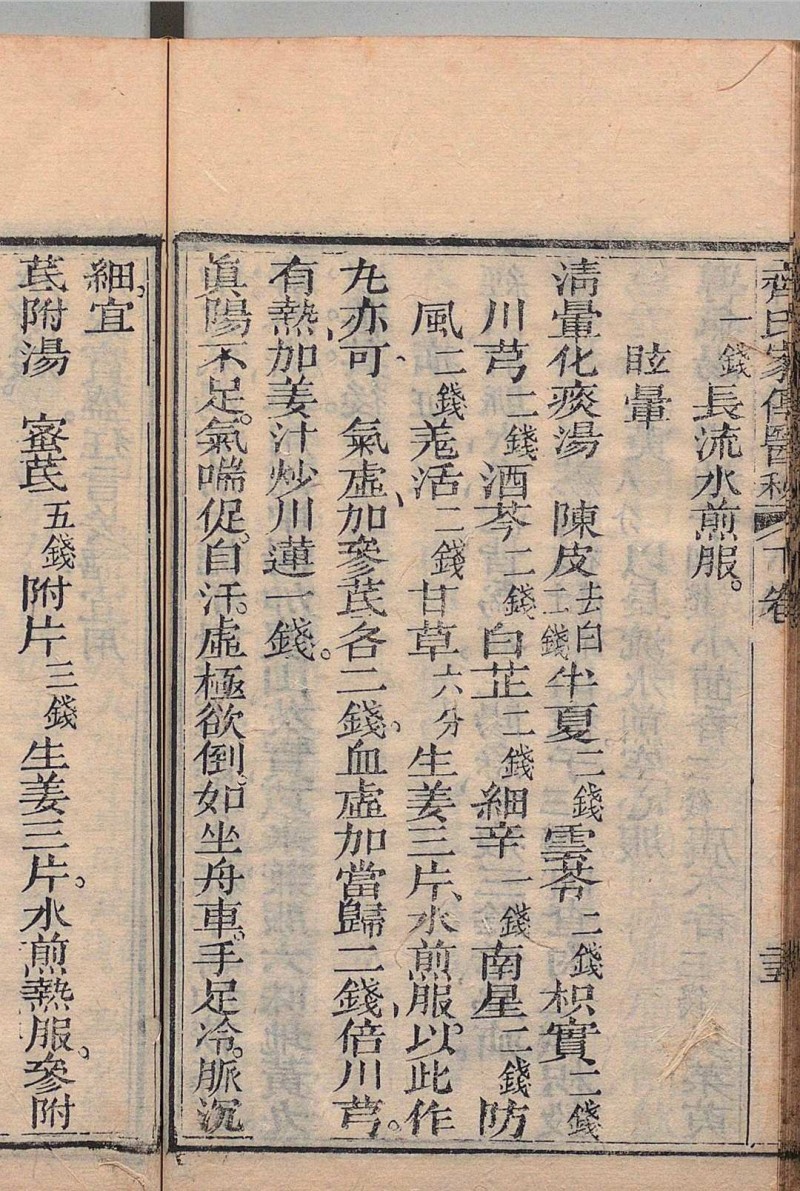 齊氏家傳醫秘 下卷
一錢長流水煎服。
眩暈
淸暈化痰湯 陳皮去白二錢半夏二錢雲苓二錢枳實二錢
川芎二錢酒芩二錢白芷二錢細辛一錢南星二錢防
風二錢羗活二錢甘草六分生姜三片、水煎服。以此作
九亦可、 氣虛、加參芪各二錢。血虛加當歸二錢、倍川芎。
有熱、加姜汁炒川蓮一錢。
眞陽不足。氣喘促。自汗。虛極欲倒。如坐舟車。手足冷。脈沉
細。宜
芪附湯 蜜芪五錢附片三錢生姜三片。水煎熱服。參附